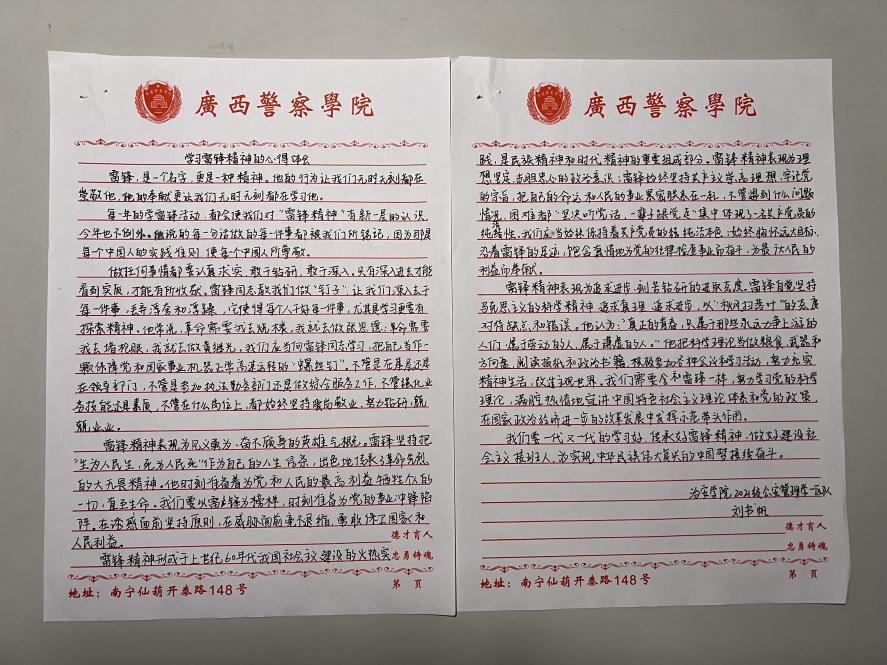 廣西警察學院
学习雷锋精神的心得体会
雷锋,是一个名字,更是一种精神。他的行为让我们无时无刻都在
崇敬他,他的奉献更让我们无时无刻都在学习他。
每一年的学雷锋活动,都会使我们对“雷锋精神”有新一层的认识,
今年也不例外。他说的每一句话做的每一件事都被我们所铭记,因为那是
每个中国人的实践准则,使每个中国人所尊敬。
做任何事情都要认真求实,敢于钻研,敢于深入,只有深入进去才能
看到实质,才能有所收获。雷锋同志教我们做“钉子”,让我们深入去于
每一件事,丢弃浮夸和浮躁,它使得每个人干好每一件事,尤其是学习更要有
探索精神。他常说,革命需要我去烧木炭,我就去做张思德;革命需要
我去堵枪眼,我就去做黄继光,我们应当向雷锋同志学习,把自己当作一
颗保障党和国家事业机器正常高速运转的“螺丝钉”。不管是在基层还是
在领导部门,不管是参加执法勤务部门还是做综合服务工作,不管强化业
务技能还是素质,不管在什么岗位上,都始终坚持爱岗敬业,努力钻研,兢
兢业业。
雷锋精神表现为见义勇为,奋不顾身的英雄气概。雷锋坚持把
“生为人民生,死为人民死”作为自己的人生信条,出色地传承了革命先烈
的大无畏精神。他时刻准备着为党和人民的最高利益牺牲个人的
一切,直至生命。我们要以雷锋为榜样,时刻准备为党的事业冲锋陷
阵。在诱惑面前坚持原则,在威胁面前毫不退缩,勇敢保卫国家和
人民利益。
雷锋精神形成于上世纪60年代我国社会主义建设的火热实
德才育人
忠勇铸魂
第 页
地址:南宁仙葫开泰路148号
廣西警察學院
践,是民族精神和时代精神的重要组成部分。雷锋精神表现为理
想坚定,赤胆忠心的政治意识;雷锋始终坚持共产主义崇高理想,牢记党
的宗旨,把自己的命运和人民的事业紧密联系在一起,不管遇到什么问题
情况,困难都“坚决听党话,一辈子跟党走”集中体现了一名共产党员的
纯洁性,我们应当始终保持着共产党员的精纯洁本色,始终胸怀远大目标,
沿着雷锋的足迹,饱含真情地为党的纪律检查事业而奋斗,为最大人民的
利益而奉献。
雷锋精神表现为追求进步,刻苦钻研的进取态度。雷锋自觉坚持
马克思主义的科学精神,追求真理,追求进步,以“秋风扫落叶”的态度
对待缺点和错误,他认为:“真正的青春,只属于那些永远力争上游的人
们,属于劳动的人,属于谦虚的人。”他把科学理论当做粮食、武器和
方向盘,阅读报纸和政治书籍,积极参加各种会议和学习活动,努力充实
精神生活,改造主观世界,我们需要会和雷锋一样,努力学习党的科学
理论,满腔热情地宣讲中国特色社会主义理论体系和党的政策,
在国家政治经济进一步的改革发展中发挥示范带头作用。
我们要一代又一代的学习好,传承好雷锋精神,做好建设社
会主义接班人,为实现中华民族伟大复兴的中国梦接续奋斗。
治安学院2021级公安管理学一区队
刘书帆
德才育人
忠勇铸魂
第 页
地址:南宁仙葫开泰路148号